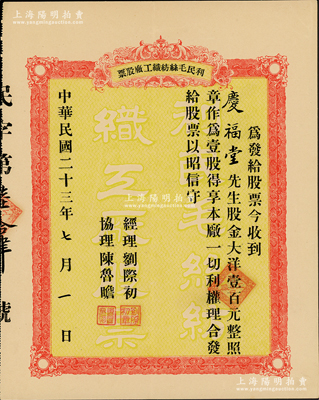 上海陽明拍賣
www.ymauction.com
利民毛絲紡織工廠股票
為發給股票今收到
慶福堂先生股金大洋壹百元整照
章作為壹股得享本廠一切利權理合發
給股票以昭信守
經理劉際初
協理陳魯瞻
中華民國二十三年七月一日
民字第
號
上海陽明拍賣